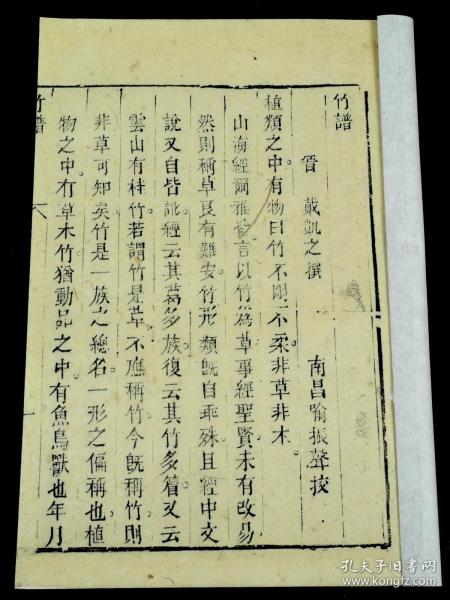 竹譜
晉 戴凱之撰 南昌喻振聲挍
植類之中有物曰竹不剛不柔非草非木
山海經爾雅皆言以竹為草事經聖賢未有改易
然則稱草良有難安竹形類既自乖殊且經中文
說又自皆訛經云其葛多族復云其竹多䈽又云
雲山有桂竹若謂竹是草不應稱竹今既稱竹則
非草可知矣竹是一族之總名一形之偏稱也植
物之中有草木竹猶動品之中有魚鳥獸也年月
竹譜
一
孔夫子旧书网
www.kongfz.com